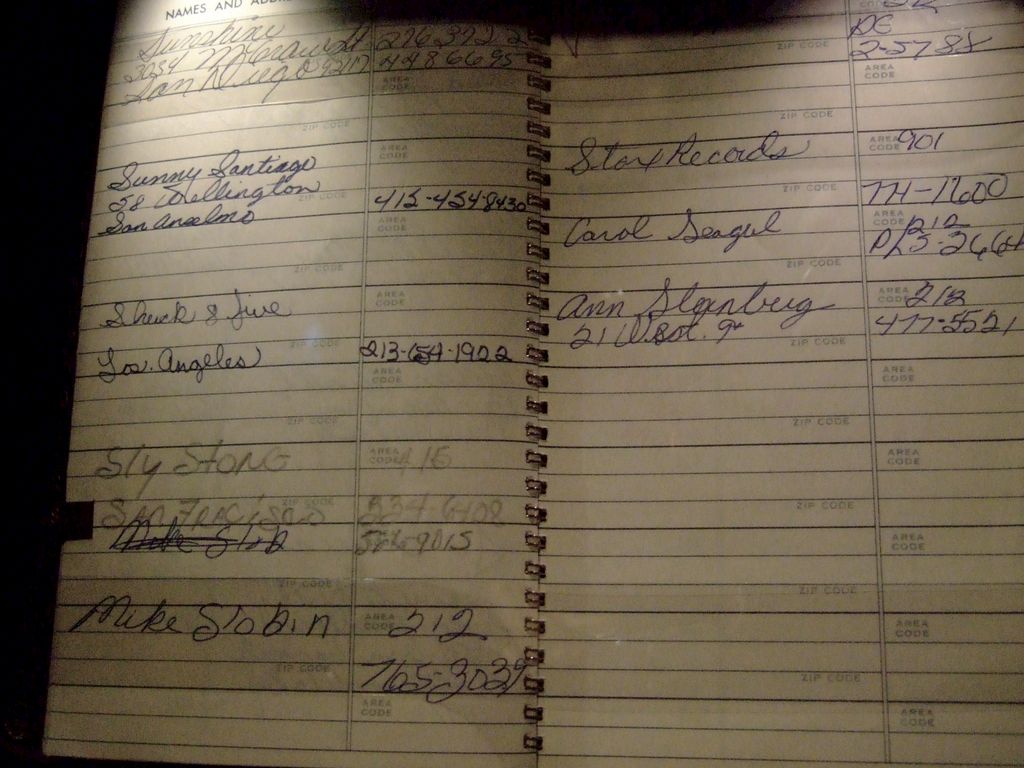 NAMES AND
Sunshine 276 3722
3034 McGraw St
San Diego 92117 448 6695
AREA CODE
ZIP CODE
AREA CODE
Sunny Santiago
58 Wellington ZIP CODE 415-454-8430
San Anselmo
AREA CODE
ZIP CODE
AREA CODE
Shuck & Jive
ZIP CODE
Los. Angeles 213-654-1902
AREA CODE
ZIP CODE
Sly Stone AREA CODE 415
ZIP CODE
San Francisco 334-6408
Mike Slob 566-9015
ZIP CODE
Mike Slobin AREA CODE 212
ZIP CODE 765-3039
AREA CODE
DE
ZIP CODE 2-5788
AREA CODE
ZIP CODE
Stax Records AREA CODE 901
ZIP CODE
TH-1600
AREA CODE 212
Carol Seagul PL5-2664
ZIP CODE
Ann Stanberg AREA CODE 212
21 W. 9th ZIP CODE 477-5521
AREA CODE
ZIP CODE
AREA CODE
ZIP CODE
AREA CODE
ZIP CODE
AREA CODE
ZIP CODE
AREA CODE